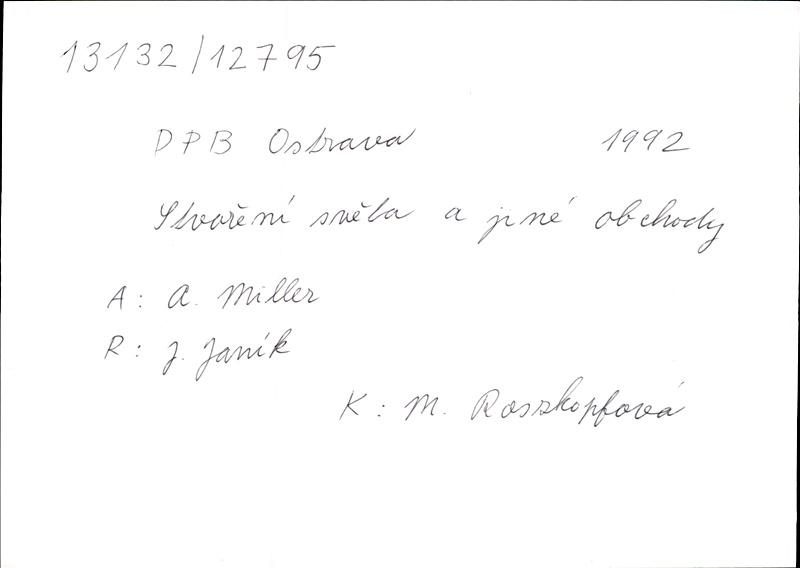 13132/12795
DPB Ostrava 1992
Stvoření světa a jiné obchody
A: A. Miller
R: J. Janík
K: M. Roszkopfová